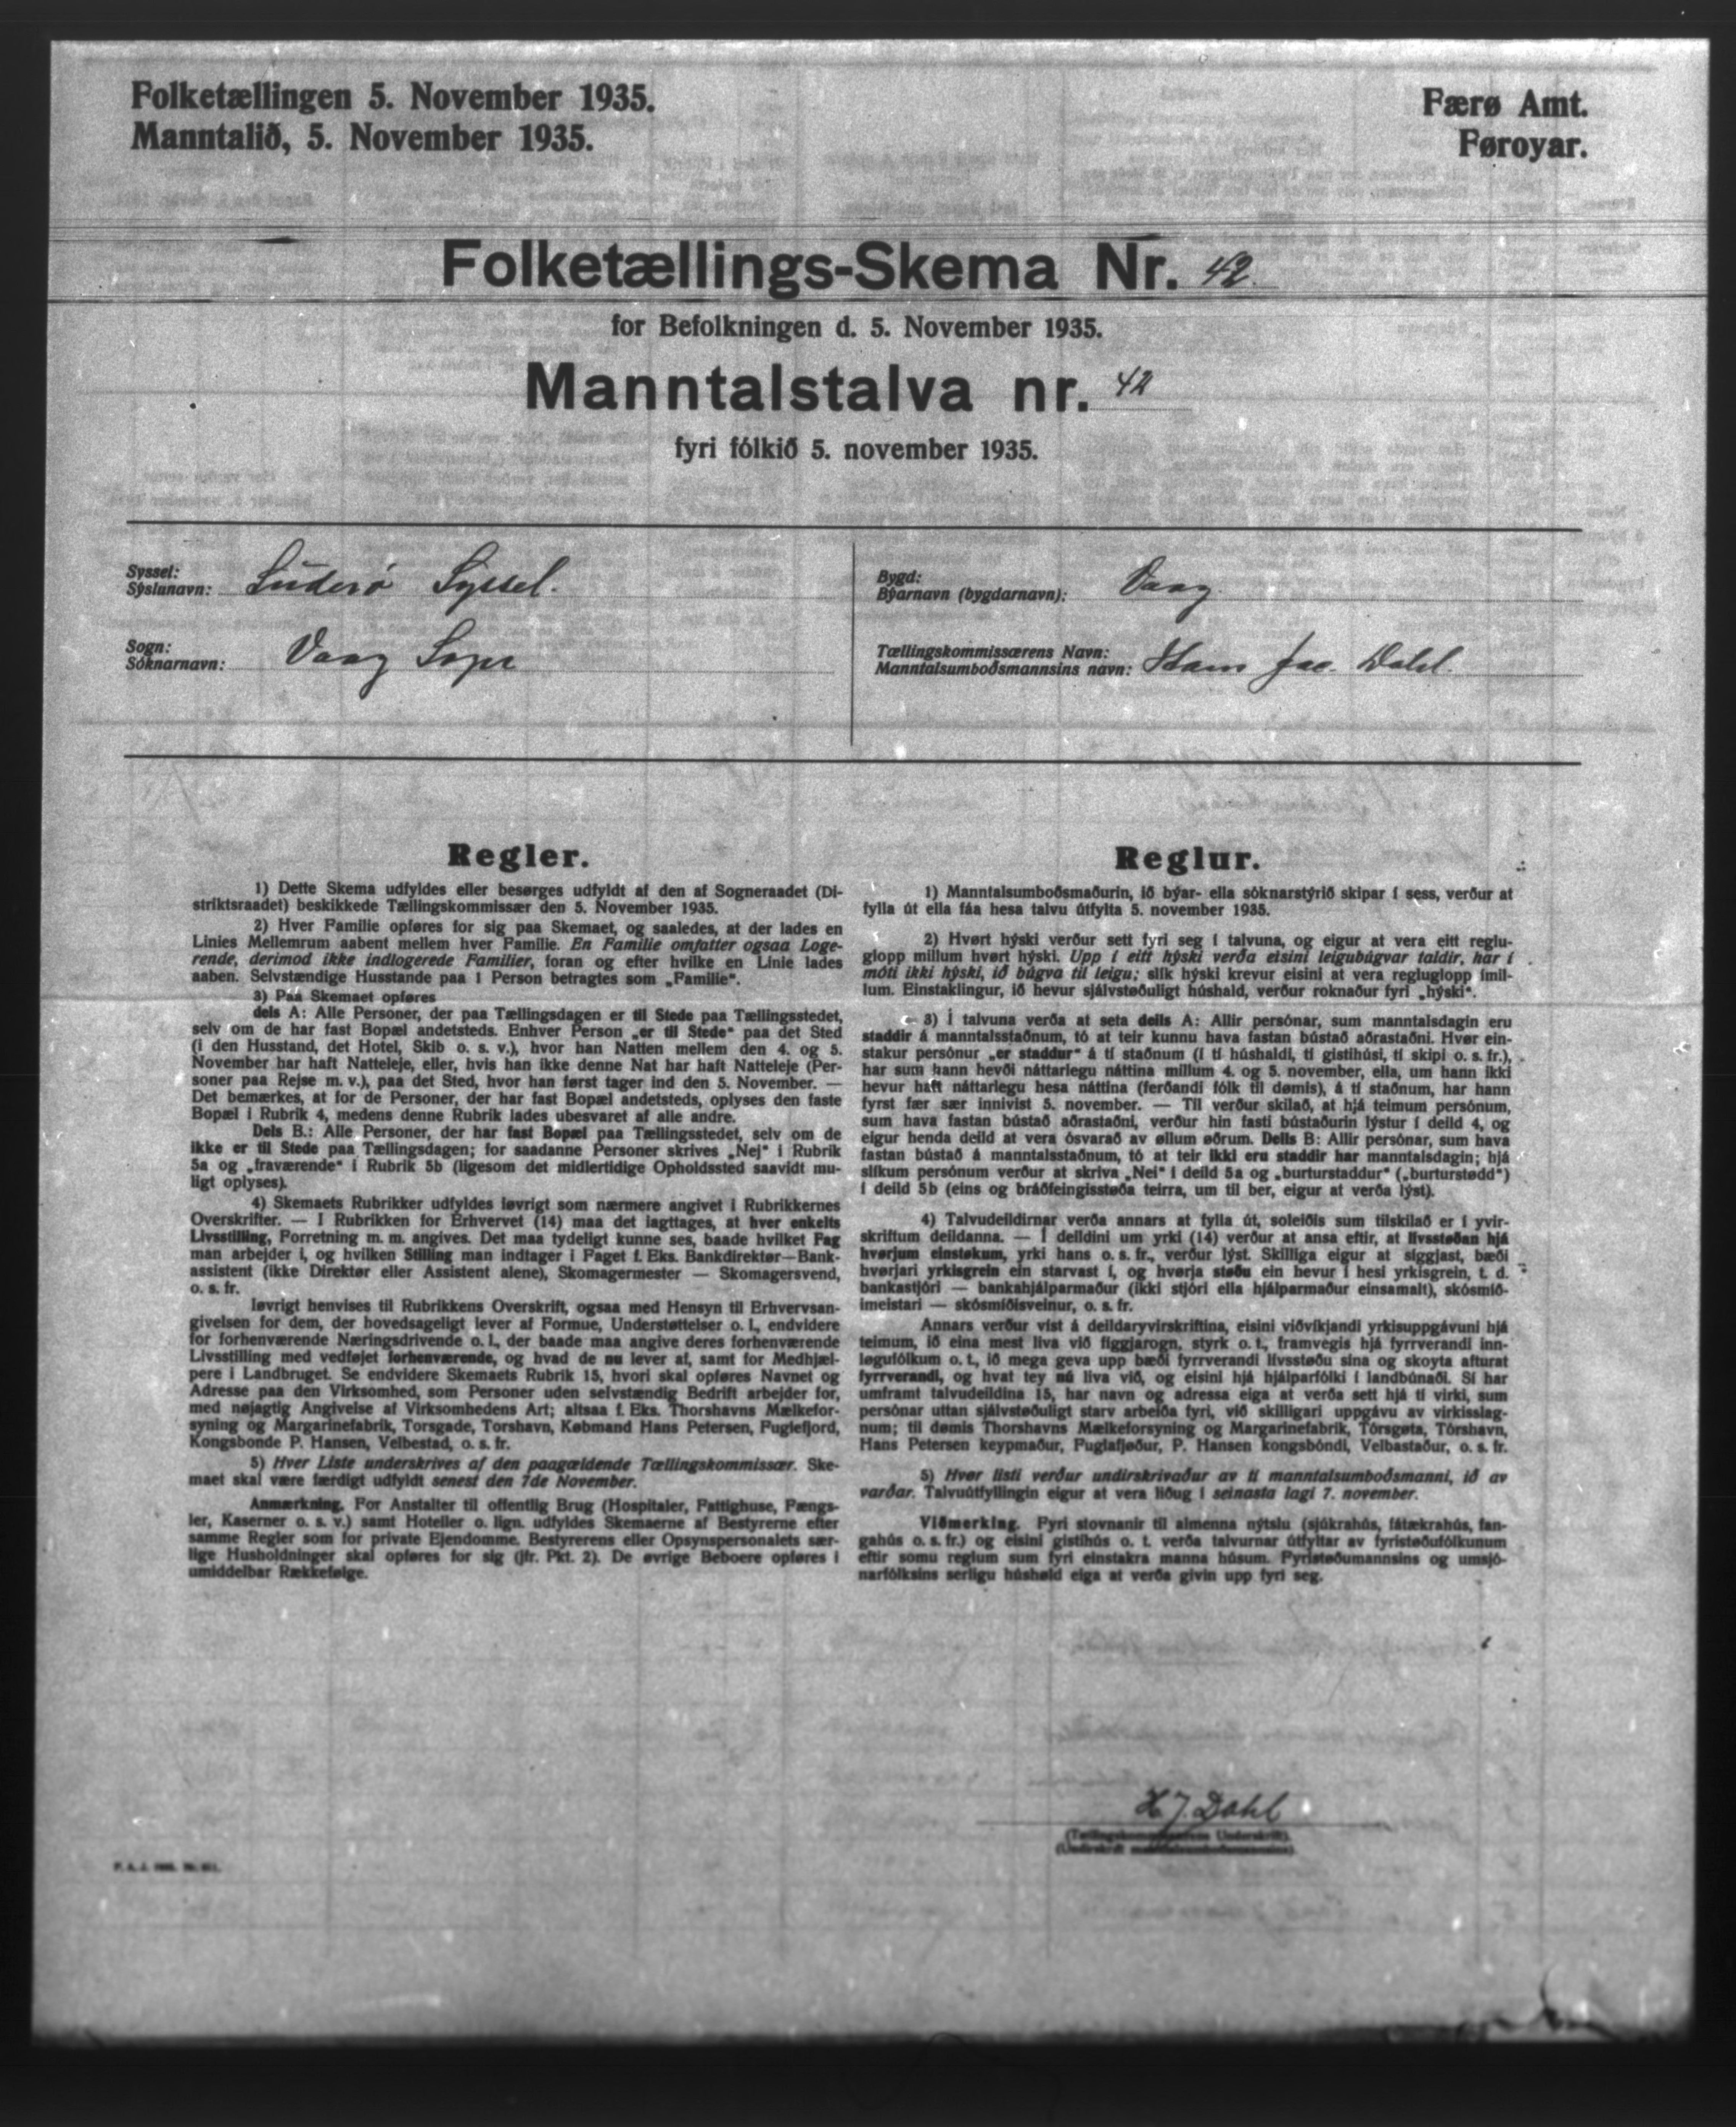 Folketællingen 5. November 1935.
Manntalið, 5. November 1935.
Færø Amt.
Føroyar.
Folketællings-Skema Nr. 42
for Befolkningen d. 5. November 1935.
Manntalstalva nr. 42
fyri fólkið 5. november 1935.
Syssel:
Sýslunavn: Suderø Syssel.
Sogn:
Sóknarnavn: Vaag Sogn
Bygd:
Býarnavn (bygdarnavn): Vaag.
Tællingskommissærens Navn:
Manntalsumboðsmannsins navn: Hans Jac. Dahl.
Regler.
1) Dette Skema udfyldes eller besørges udfyldt af den af Sogneraadet (Di-
striktsraadet) beskikkede Tællingskommissær den 5. November 1935.
2) Hver Familie opføres for sig paa Skemaet, og saaledes, at der lades en
Linies Mellemrum aabent mellem hver Familie. En Familie omfatter ogsaa Loge-
rende, derimod ikke indlogerede Familier, foran og efter hvilke en Linie lades
aaben. Selvstændige Husstande paa 1 Person betragtes som „Familie“.
3) Paa Skemaet opføres
dels A: Alle Personer, der paa Tællingsdagen er til Stede paa Tællingsstedet,
selv om de har fast Bopæl andetsteds. Enhver Person „er til Stede“ paa det Sted
(i den Husstand, det Hotel, Skib o. s. v.), hvor han Natten mellem den 4. og 5.
November har haft Natteleje, eller, hvis han ikke denne Nat har haft Natteleje (Per-
soner paa Rejse m. v.), paa det Sted, hvor han først tager ind den 5. November. —
Det bemærkes, at for de Personer, der har fast Bopæl andetsteds, oplyses den faste
Bopæl i Rubrik 4, medens denne Rubrik lades ubesvaret af alle andre.
Dels B.: Alle Personer, der har fast Bopæl paa Tællingsstedet, selv om de
ikke er til Stede paa Tællingsdagen; for saadanne Personer skrives „Nej“ i Rubrik
5a og „fraværende“ i Rubrik 5b (ligesom det midlertidige Opholdssted saavidt mu-
ligt oplyses).
4) Skemaets Rubrikker udfyldes iøvrigt som nærmere angivet i Rubrikkernes
Overskrifter. — I Rubrikken for Erhvervet (14) maa det iagttages, at hver enkelts
Livsstilling, Forretning m. m. angives. Det maa tydeligt kunne ses, baade hvilket Fag
man arbejder i, og hvilken Stilling man indtager i Faget f. Eks. Bankdirektør—Bank-
assistent (ikke Direktør eller Assistent alene), Skomagermester — Skomagersvend,
o. s. fr.
Iøvrigt henvises til Rubrikkens Overskrift, ogsaa med Hensyn til Erhvervsan-
givelsen for dem, der hovedsageligt lever af Formue, Understøttelser o. l., endvidere
for forhenværende Næringsdrivende o. l., der baade maa angive deres forhenværende
Livsstilling med vedføjet forhenværende, og hvad de nu lever af, samt for Medhjæl-
pere i Landbruget. Se endvidere Skemaets Rubrik 15, hvori skal opføres Navnet og
Adresse paa den Virksomhed, som Personer uden selvstændig Bedrift arbejder for,
med nøjagtig Angivelse af Virksomhedens Art; altsaa f. Eks. Thorshavns Mælkefor-
syning og Margarinefabrik, Torsgade, Torshavn, Købmand Hans Petersen, Fuglefjord,
Kongsbonde P. Hansen, Velbestad, o. s. fr.
5) Hver Liste underskrives af den paagældende Tællingskommissær. Ske-
maet skal være færdigt udfyldt senest den 7de November.
Anmærkning. For Anstalter til offentlig Brug (Hospitaler, Fattighuse, Fængs-
ler, Kaserner o. s. v.) samt Hoteller o. lign. udfyldes Skemaerne af Bestyrerne efter
samme Regler som for private Ejendomme. Bestyrerens eller Opsynspersonalets sær-
lige Husholdninger skal opføres for sig (jfr. Pkt. 2). De øvrige Beboere opføres i
umiddelbar Rækkefølge.
Reglur.
1) Manntalsumboðsmaðurin, ið býar- ella sóknarstýrið skipar í sess, verður at
fylla út ella fáa hesa talvu útfylta 5. november 1935.
2) Hvørt hýski verður sett fyri seg í talvuna, og eigur at vera eitt reglu-
glopp millum hvørt hýski. Upp í eitt hýski verða eisini leigubúgvar taldir, har í
móti ikki hýski, ið búgva til leigu; slík hýski krevur eisini at vera regluglopp ímil-
lum. Einstaklingur, ið hevur sjálvstøðuligt húshald, verður roknaður fyri „hýski“.
3) Í talvuna verða at seta deils A: Allir persónar, sum manntalsdagin eru
staddir á manntalsstaðnum, tó at teir kunnu hava fastan bústað aðrastaðni. Hvør ein-
stakur persónur „er staddur“ á tí staðnum (í tí húshaldi, tí gistihúsi, tí skipi o. s. fr.),
har sum hann hevði náttarlegu náttina millum 4. og 5. november, ella, um hann ikki
hevur haft náttarlegu hesa náttina (ferðandi fólk til dømis), á tí staðnum, har hann
fyrst fær sær innivist 5. november. — Til verður skilað, at hjá teimum persónum,
sum hava fastan bústað aðrastaðni, verður hin fasti bústaðurin lýstur í deild 4, og
eigur henda deild at vera ósvarað av øllum øðrum. Deils B: Allir persónar, sum hava
fastan bústað á manntalsstaðnum, tó at teir ikki eru staddir har manntalsdagin; hjá
slíkum persónum verður at skriva „Nei“ í deild 5a og „burturstaddur“ („burturstødd“)
í deild 5b (eins og bráðfeingisstøða teirra, um til ber, eigur at verða lýst).
4) Talvudeildirnar verða annars at fylla út, soleiðis sum tilskilað er í yvir-
skriftum deildanna. — Í deildini um yrki (14) verður at ansa eftir, at livsstøðan hjá
hvørjum einstøkum, yrki hans o. s. fr., verður lýst. Skilliga eigur at síggjast, bæði
hvørjari yrkisgrein ein starvast í, og hvørja støðu ein hevur í hesi yrkisgrein, t. d.
bankastjóri — bankahjálparmaður (ikki stjóri ella hjálparmaður einsamalt), skósmíð-
imeistari — skósmíðisveinur, o. s. fr.
Annars verður víst á deildaryvirskriftina, eisini viðvíkjandi yrkisuppgávuni hjá
teimum, ið eina mest liva við figgjarogn, styrk o. t., framvegis hjá fyrrverandi inn-
løgufólkum o. t., ið mega geva upp bæði fyrrverandi livsstøðu sína og skoyta afturat
fyrrverandi, og hvat tey nú liva við, og eisini hjá hjálparfólki í landbúnaði. Sí har
umframt talvudeildina 15, har navn og adressa eiga at verða sett hjá tí virki, sum
persónar uttan sjálvstøðuligt starv arbeiða fyri, við skilligari uppgávu av virkisslag-
num; til dømis Thorshavns Mælkeforsyning og Margarinefabrik, Tórsgøta, Tórshavn,
Hans Petersen keypmaður, Fuglafjøður, P. Hansen kongsbóndi, Velbastaður, o. s. fr.
5) Hvør listi verður undirskrivaður av tí manntalsumboðsmanni, ið av
varðar. Talvuútfyllingin eigur at vera liðug í seinasta lagi 7. november.
Viðmerking. Fyri stovnanir til almenna nýtslu (sjúkrahús, fátækrahús, fan-
gahús o. s. fr.) og eisini gistihús o. t. verða talvurnar útfyltar av fyristøðufólkunum
eftir somu reglum sum fyri einstakra manna húsum. Fyristøðumannsins og umsjó-
narfólksins serligu húshøld eiga at verða givin upp fyri seg.
H J. Dahl
(Tællingskommissærens Underskrift).
(Undirskrift manntalsumboðsmannsins)